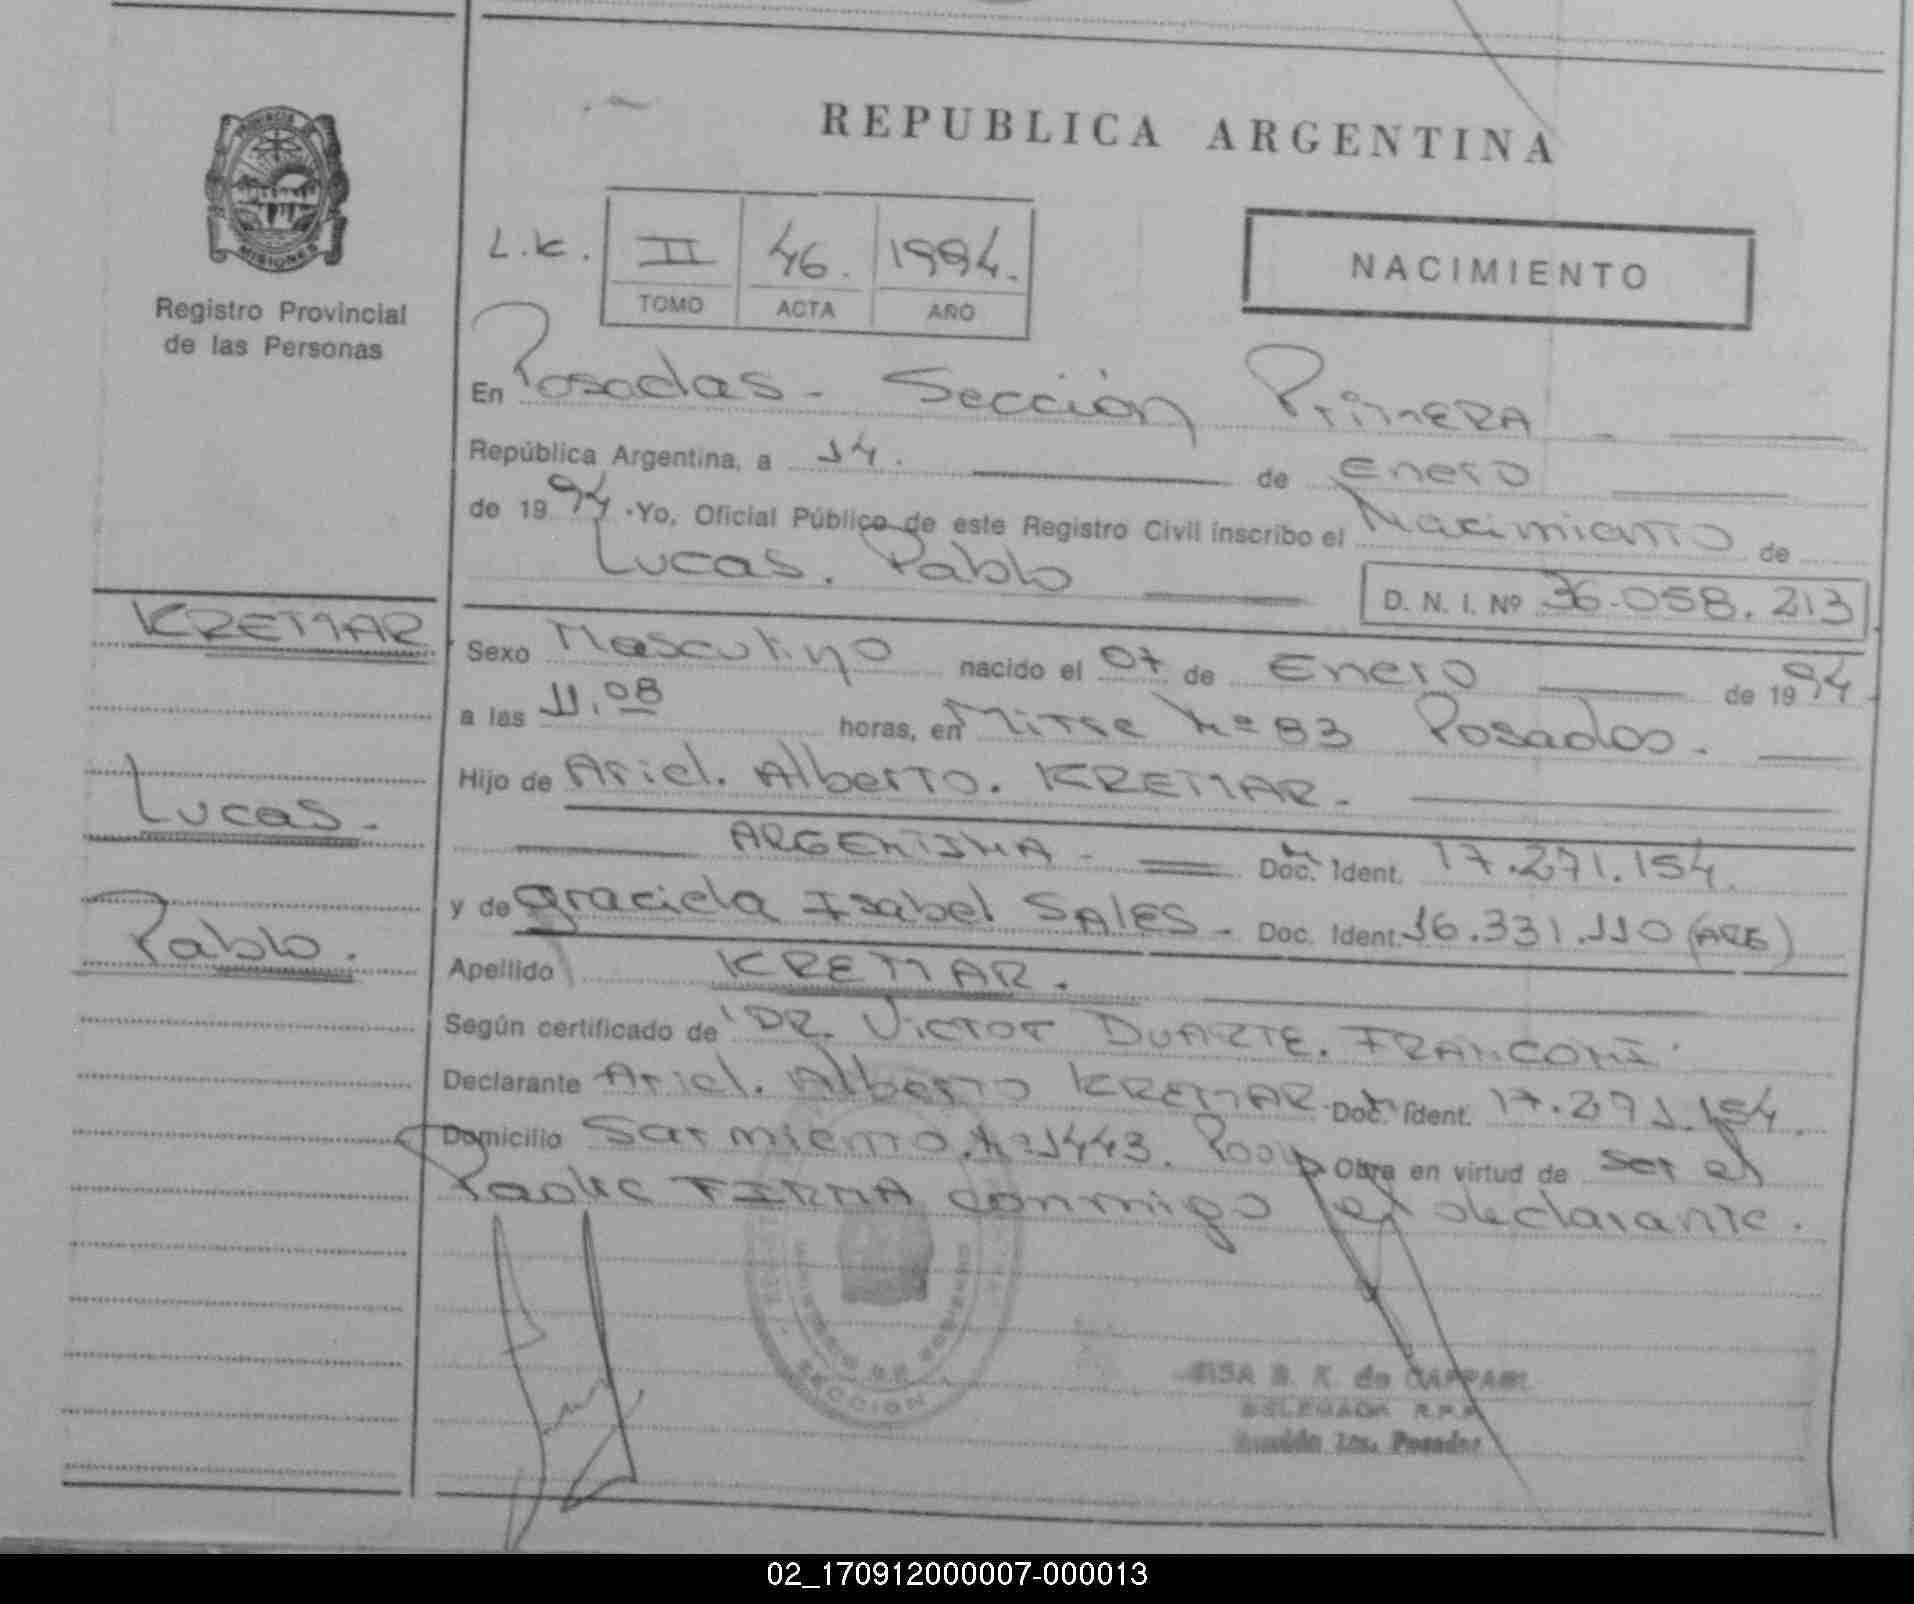 PROVINCIA DE
MISIONES
Registro Provincial
de las Personas
REPUBLICA ARGENTINA
L.K.
II 46. 1994.
TOMO ACTA AÑO
NACIMIENTO
En Posadas - Sección Primera
República Argentina, a 14. de Enero
de 1994 . Yo, Oficial Público de este Registro Civil inscribo el Nacimiento de
Lucas. Pablo
D. N. I. Nº 36.058.213
KREMAR
Lucas.
Pablo.
Sexo Masculino nacido el 07 de Enero de 1994
a las 11.08 horas, en Mitre Nº 83 Posadas.
Hijo de Ariel. Alberto. KREMAR.
ARGENTINA - Doc. Ident. 17.271.154
y de Graciela Isabel SALES. Doc. Ident. 16.331.110 (ARG)
Apellido KREMAR.
Según certificado de DR. Victor DUARTE. FRANCONI.
Declarante Ariel. Alberto KREMAR Doc. Ident. 17.271.154.
Domicilio Sarmiento. Nº 1443. Obra en virtud de ser el
Padre FIRMA conmigo el declarante.
MINISTERIO DE GOBIERNO
SECCION
DELEGADA R.P.P.
Sección 1ra. Posadas
02_170912000007-000013